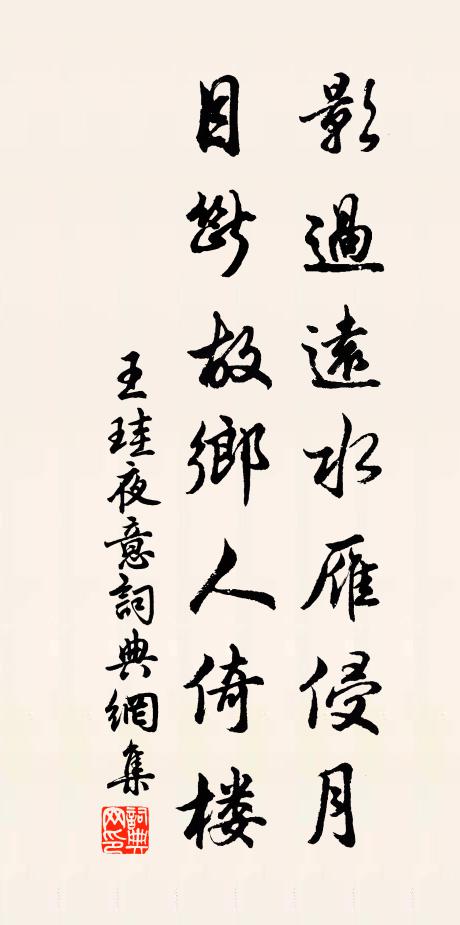 影過遠水雁侵月
目斷故鄉人倚楼
王珪夜意詞典網集
詞典网印